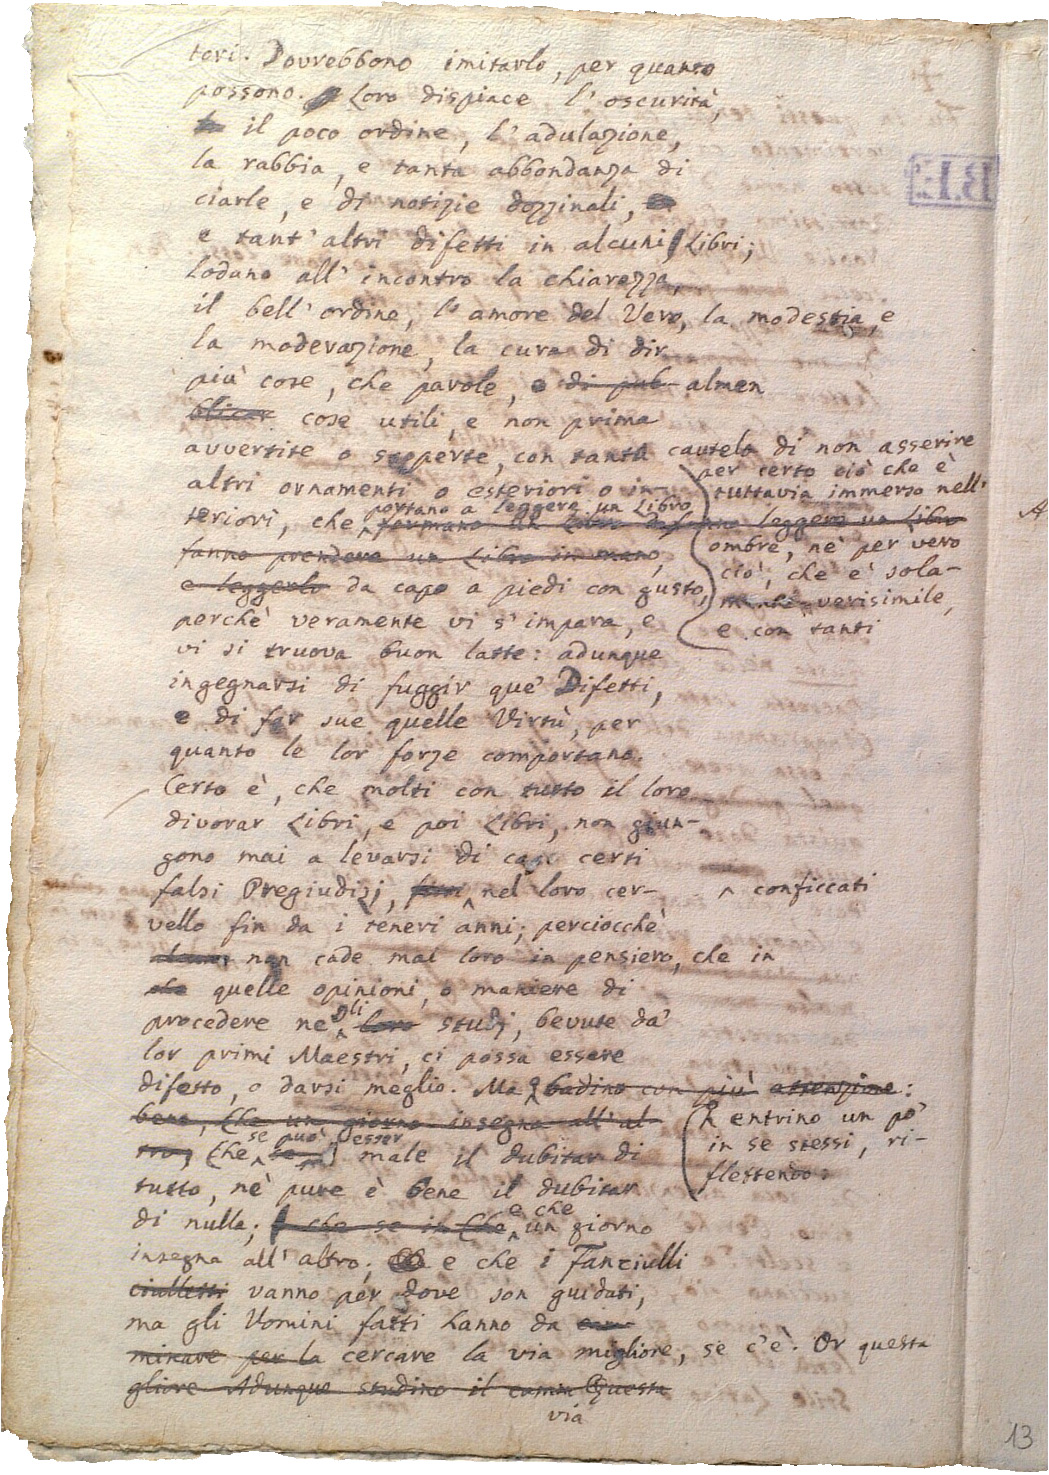 tori. Dovrebbono imitarlo, per quanto
possono. Loro dispiace l'oscurità,
il poco ordine, l'adulazione,
la rabbia, e tanta abbondanza di
ciarle, e di notizie dozzinali,
e tant'altri difetti in alcuni Libri;
Lodano all'incontro la chiarezza,
il bell'ordine, l'amore del Vero, la modestia, e
la moderazione, la cura di dir
più cose, che parole, e di pub- almen
blicar cose utili, e non prima
avvertite o scoperte, con tanta cautela di non asserire
per certo ciò che è
tuttavia immerso nell'
ombre, nè per vero
ciò, che è sola-
mente verisimile,
e con tanti
altri ornamenti o esteriori o in-
portano a leggere un Libro
teriori, che formano un Libro leggere un Libro
fanno prendere un Libro in mano,
e leggerlo da capo a piedi con gusto,
perchè veramente vi s'impara, e
vi si truova buon latte: adunque
ingegnarsi di fuggir que' Difetti,
e di far sue quelle Virtù, per
quanto le lor forze comportano.
Certo è, che molti con tutto il loro
divorar Libri, e poi Libri, non giun-
gono mai a levarsi di capo certi
falsi Pregiudizj, nel loro cer- conficcati
vello fin da i teneri anni; perciocchè
non cade mai loro in pensiero, che in
che quelle opinioni, o maniere di
gli
procedere ne' loro studj, bevute da'
lor primi Maestri, ci possa essere
difetto, o darsi meglio. Ma badino con più attenzione:
R entrino un po'
in se stessi, ri-
flettendo:
bene, che un giorno insegna all'al-
se può esser
tro, Che male il dubitar di
tutto, nè pure è bene il dubitar
e che
di nulla; che se in Che un giorno
insegna all'altro; e che i Fanciulli
ciulletti vanno per dove son guidati,
ma gli Uomini fatti hanno da cam-
minare per la cercare la via migliore, se c'è. Or questa
gliore Adunque studino il Questa
via
A
B.I.E
13